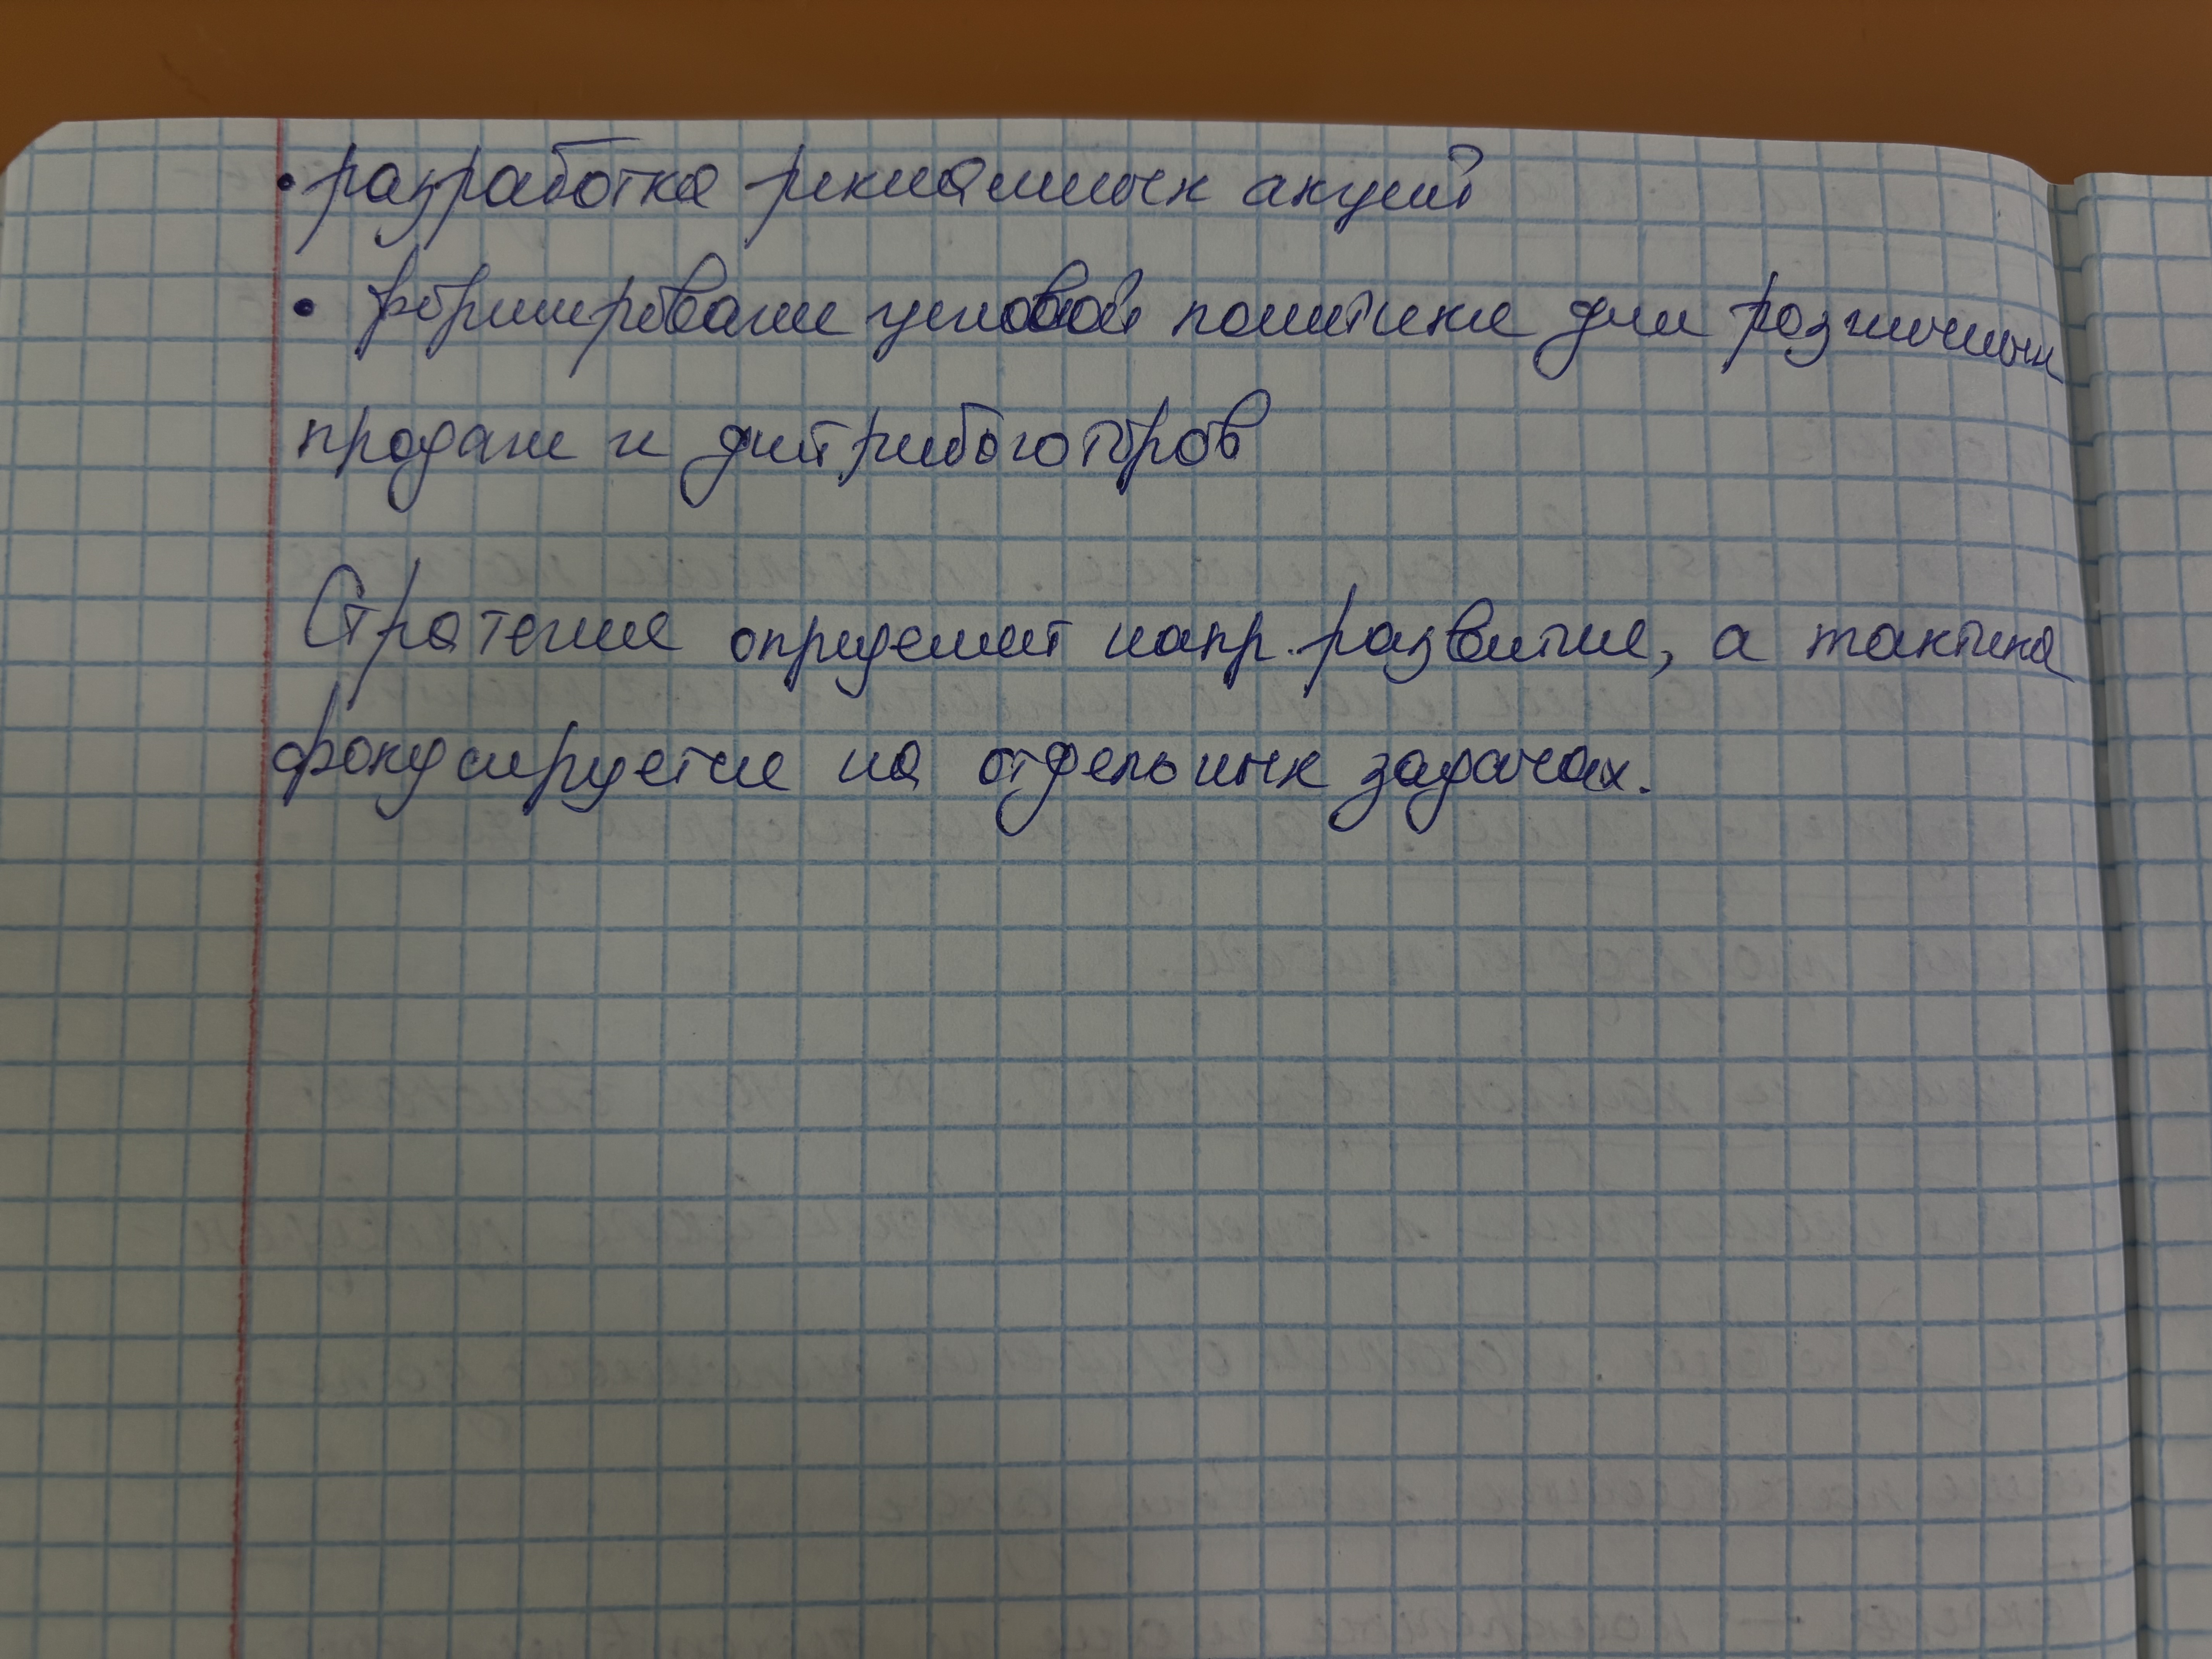 • разработка рекламных акций
• формирование ценовой политики для розничных
продаж и дистрибьюторов
Стратегия определяет напр. развития, а тактика
фокусируется на отдельных задачах.